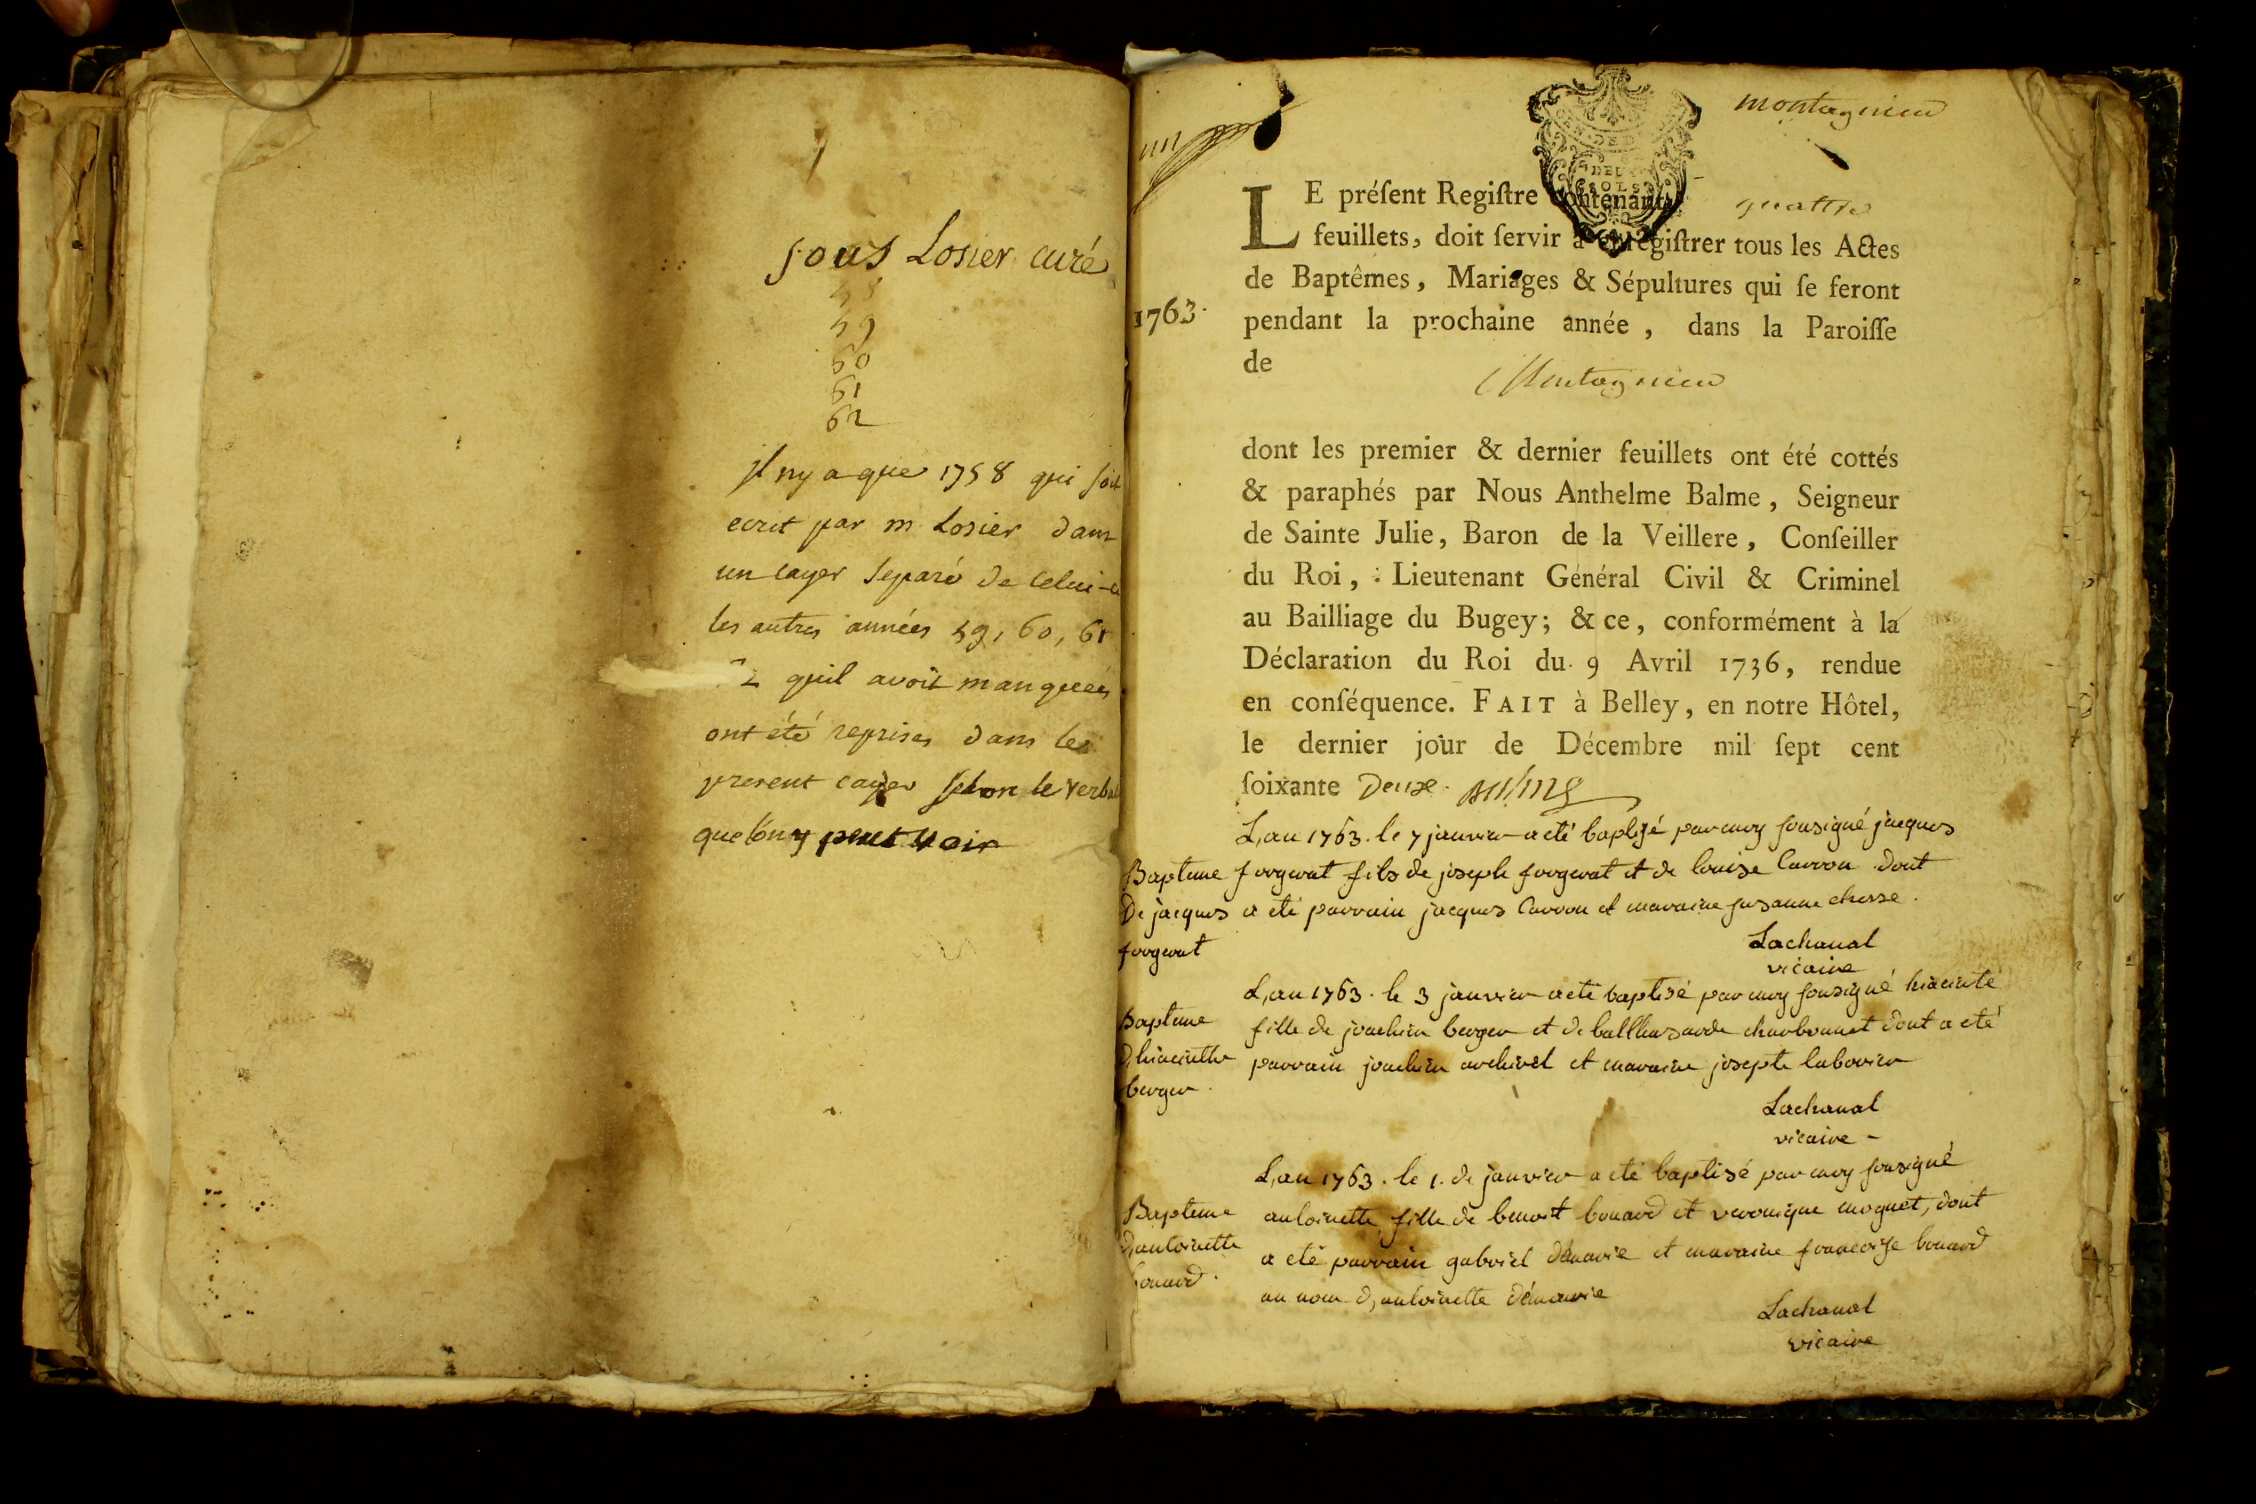 sous Losier curé
58
59
60
61
62
jl ny a que 1758 qui soit
ecrit par m Losier dans
un cayer separé de celui-ci
les autres années 59, 60, 61
2 quil avoit manquées
ont été reprises dans les
present cayer selon le verbal
que lón y peut voir
un
montagnieu
GEN. DE D
DEUX
SOLS
LE préſent Regiſtre contenant quattre
feuillets, doit ſervir à enregiſtrer tous les Actes
de Baptêmes, Mariages & Sépultures qui ſe feront
1763.
pendant la prochaine année, dans la Paroiſſe
de
Montagnieu
dont les premier & dernier feuillets ont été cottés
& paraphés par Nous Anthelme Balme, Seigneur
de Sainte Julie, Baron de la Veillere, Conſeiller
du Roi, Lieutenant Général Civil & Criminel
au Bailliage du Bugey; & ce, conformément à la
Déclaration du Roi du 9 Avril 1736, rendue
en conſéquence. FAIT à Belley, en notre Hôtel,
le dernier jour de Décembre mil ſept cent
ſoixante Deuxe. Balme
L,an 1763. le 7 janvier a eté baptisé par moy sousigné jacques
forgerat fils de joseph forgerat et de louise Carron dont
a eté parrain jacques Carron et maraine susanne chesse.
Lachanal
vicaire
Bapteme
De jacques
forgerat
L,an 1763. le 3 janvier a eté baptisé par moy sousigné hiacinte
fille de joachim berger et de balthasarde charbonnet dont a eté
parrain joachim archirel et maraine josepte laborier
Lachanal
vicaire -
Bapteme
d,hiacinthe
berger.
L,an 1763. le 1. de janvier a eté baptisé par moy sousigné
antoinette fille de benoit bonard et veronique moguet, dont
a eté parrain gabriel démarie et maraine francoise bonard
au nom d,antoinette démarie
Lachanal
vicaire
Bapteme
d,antoinette
bonard.